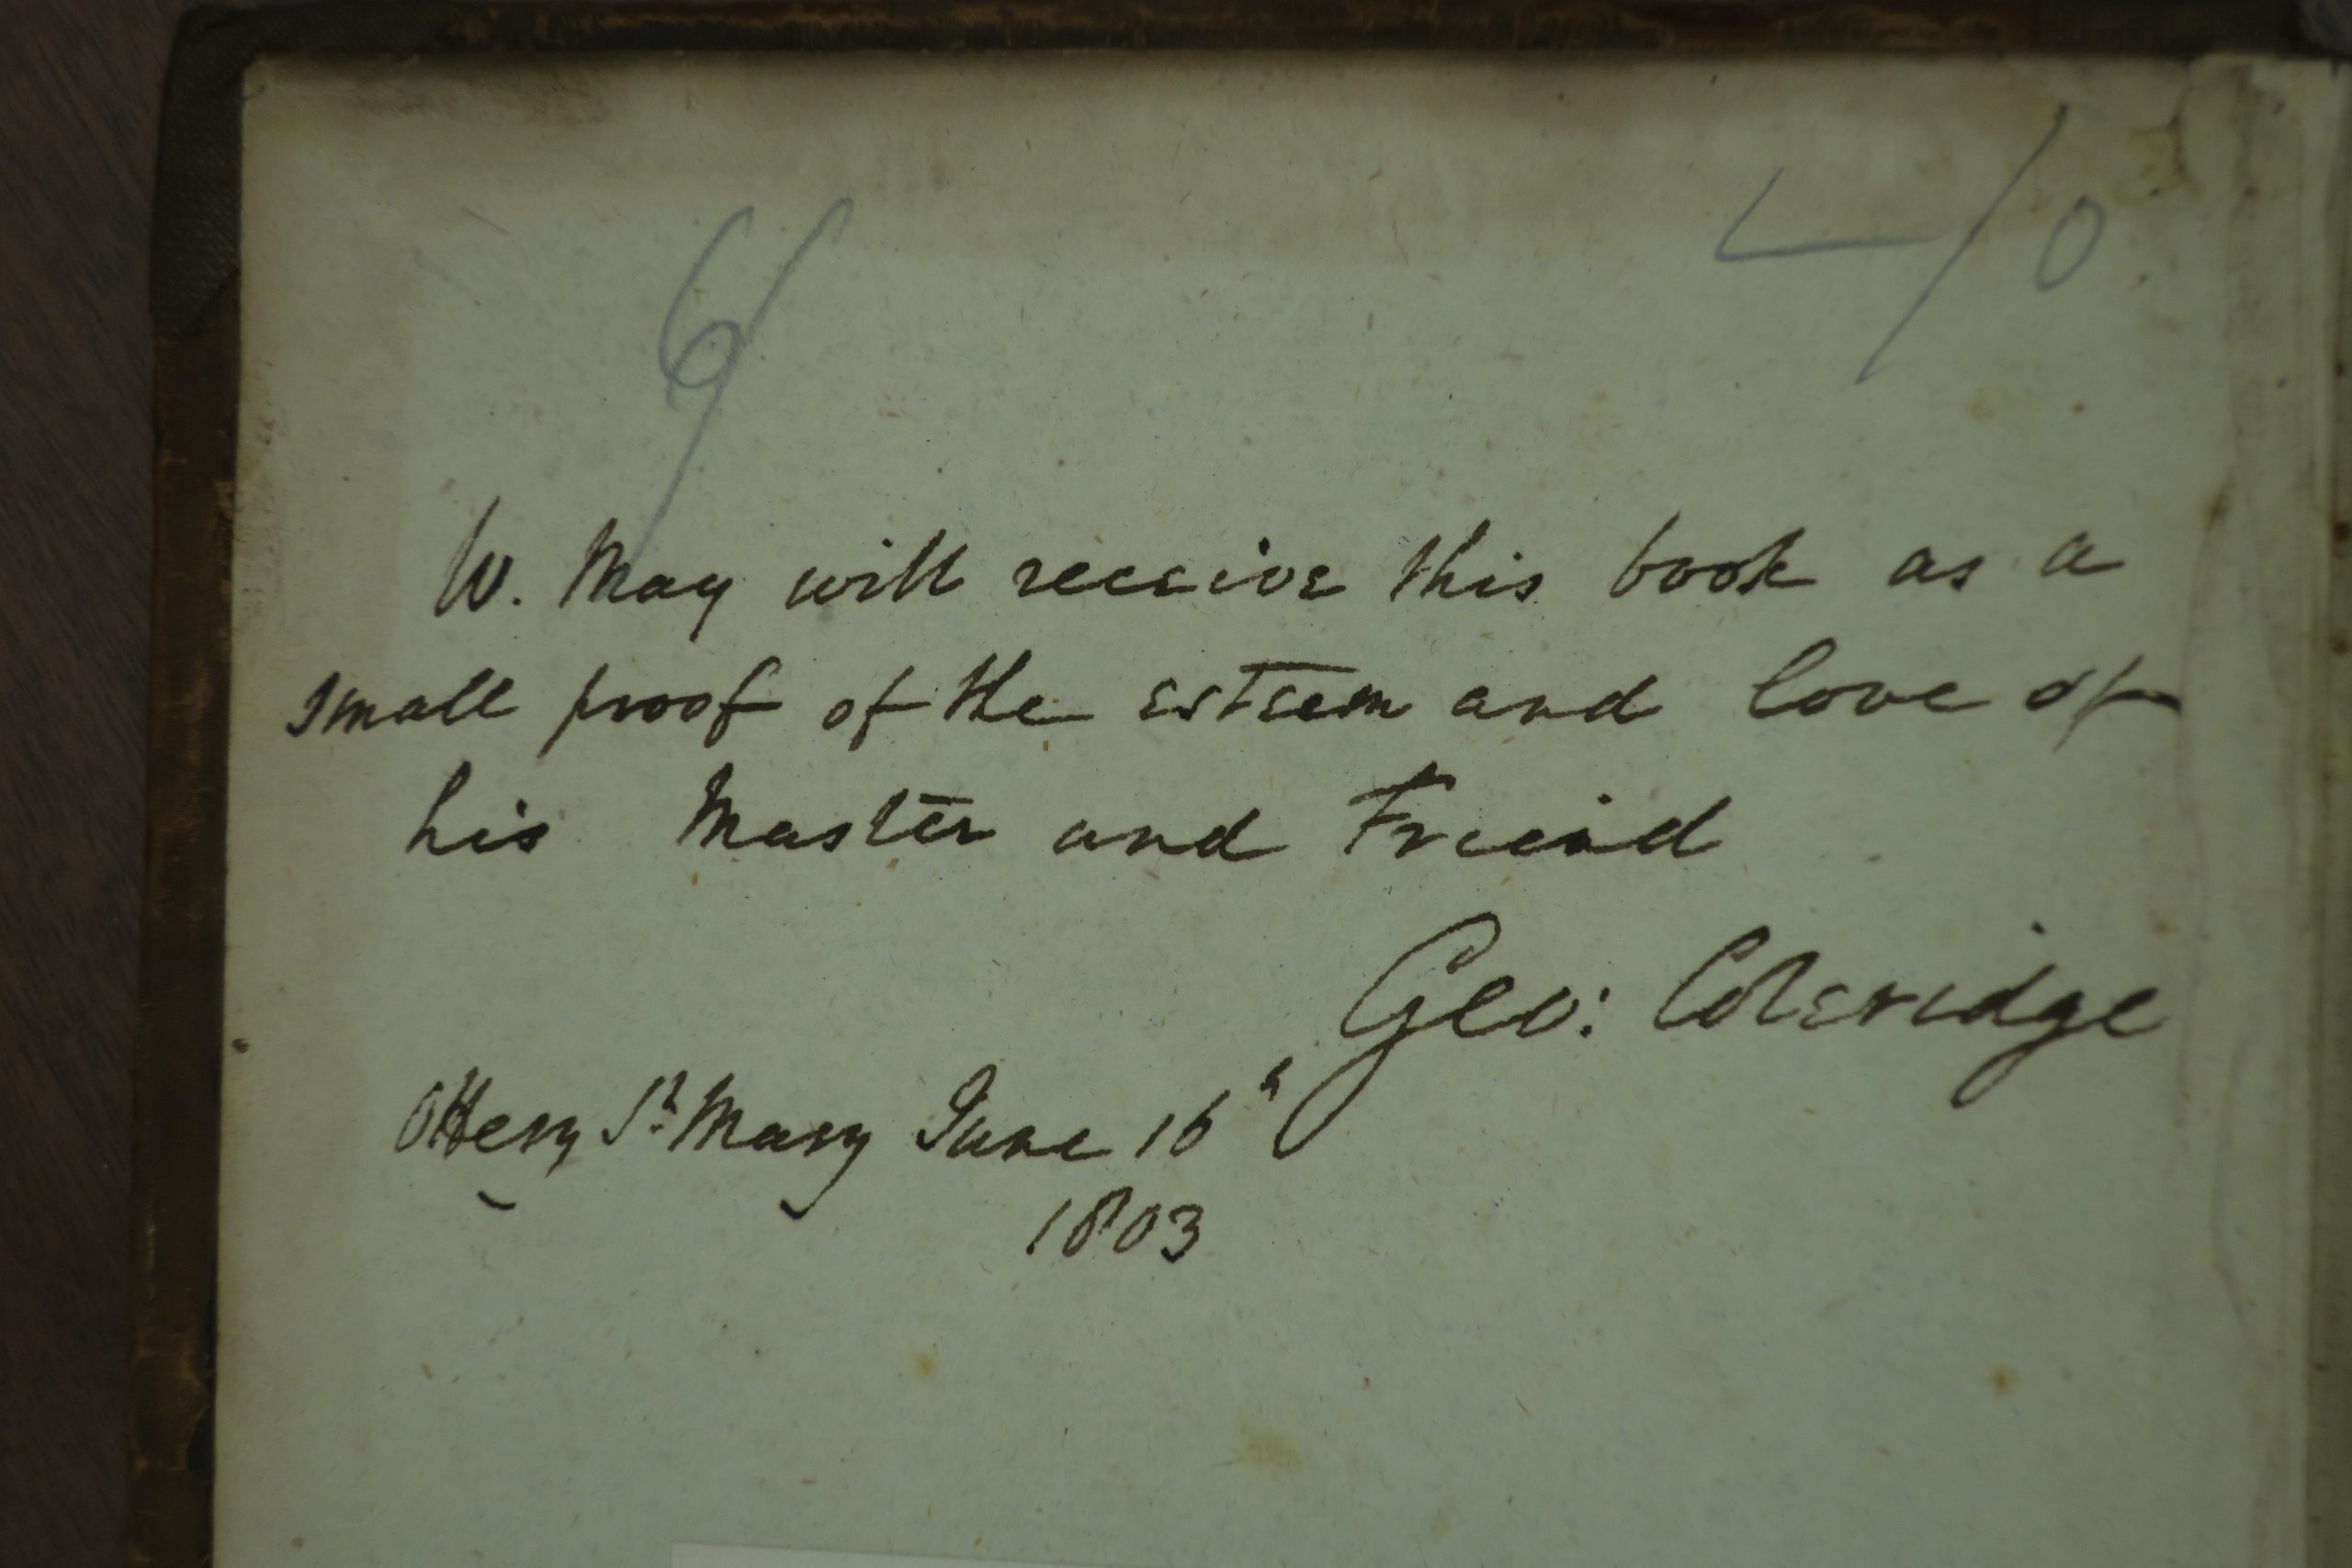 6/
/0
W. May will receive this book as a
small proof of the esteem and love of
his Master and Friend
Geo: Coleridge
Ottery St. Mary June 16th
1803